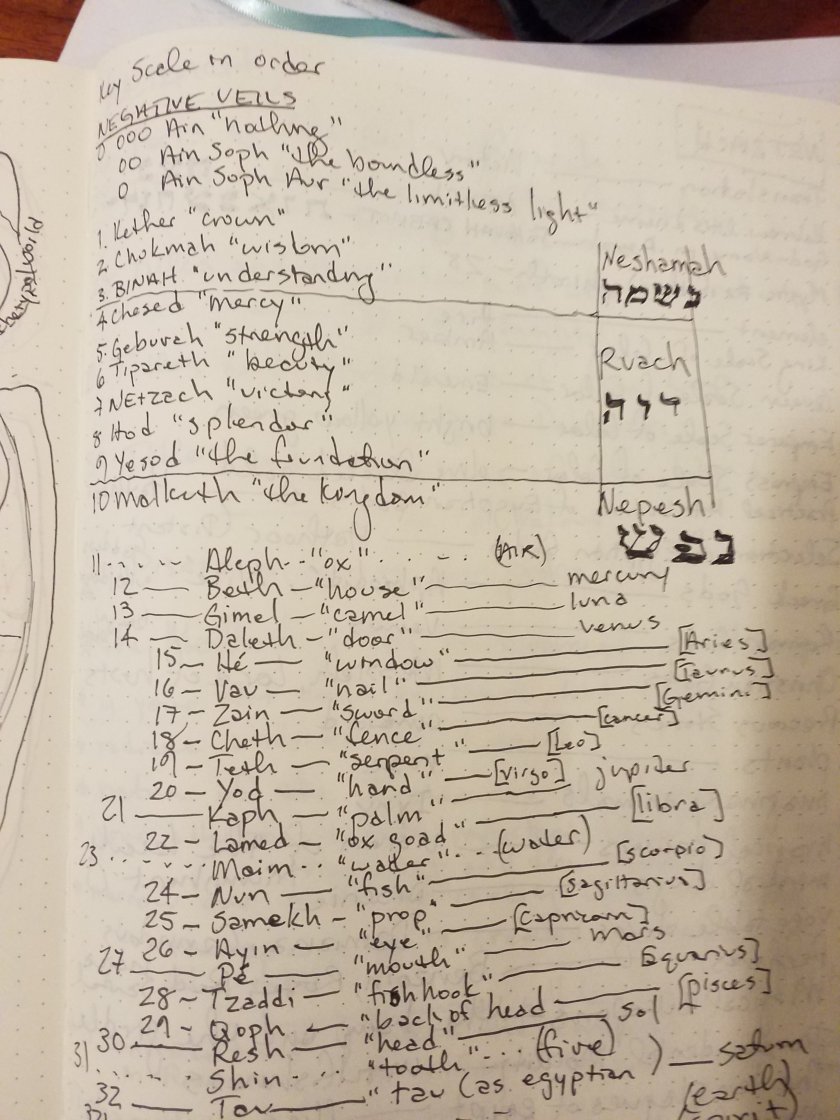 Key Scale in order
NEGATIVE VEILS
0 000 Ain "nothing"
00 Ain Soph "the boundless"
0 Ain Soph Aur "the limitless light"
1. Kether "crown"
2. Chokmah "wisdom"
3. BINAH "understanding"
Neshamah
נשמה
4. Chesed "mercy"
5. Geburah "strength"
6 Tipareth "beauty"
7 NEtzach "victory"
8 Hod "splendor"
9 Yesod "the foundation"
Ruach
10 Malkuth "the Kingdom"
Nepesh
נפש
11 ..... Aleph -- "ox" .... -- (AIR)
12 — Beth — "house" — mercury
13 — Gimel — "camel" — luna
14 — Daleth — "door" — venus
15 — Hé — "window" — [Aries]
16 — Vau — "nail" — [Taurus]
17 — Zain — "sword" — [Gemini]
18 — Cheth — "fence" — [cancer]
19 — Teth — "serpent" — [Leo]
20 — Yod — "hand" — [virgo]
21 — Kaph — "palm" — jupiter
22 — Lamed — "ox goad" — [libra]
23 ..... Maim .. "water" .. (water)
24 — Nun — "fish" — [scorpio]
25 — Samekh — "prop" — [sagittarius]
26 — Ayin — "eye" — [capricorn]
27 — Pé — "mouth" — mars
28 — Tzaddi — "fishhook" — Equarius]
29 — Qoph — "back of head — [pisces]
30 — Resh — "head" — Sol
31 ..... Shin ... "tooth" ... (fire)
32 — Tau — "tau (as egyptian ) — saturn
(earth)